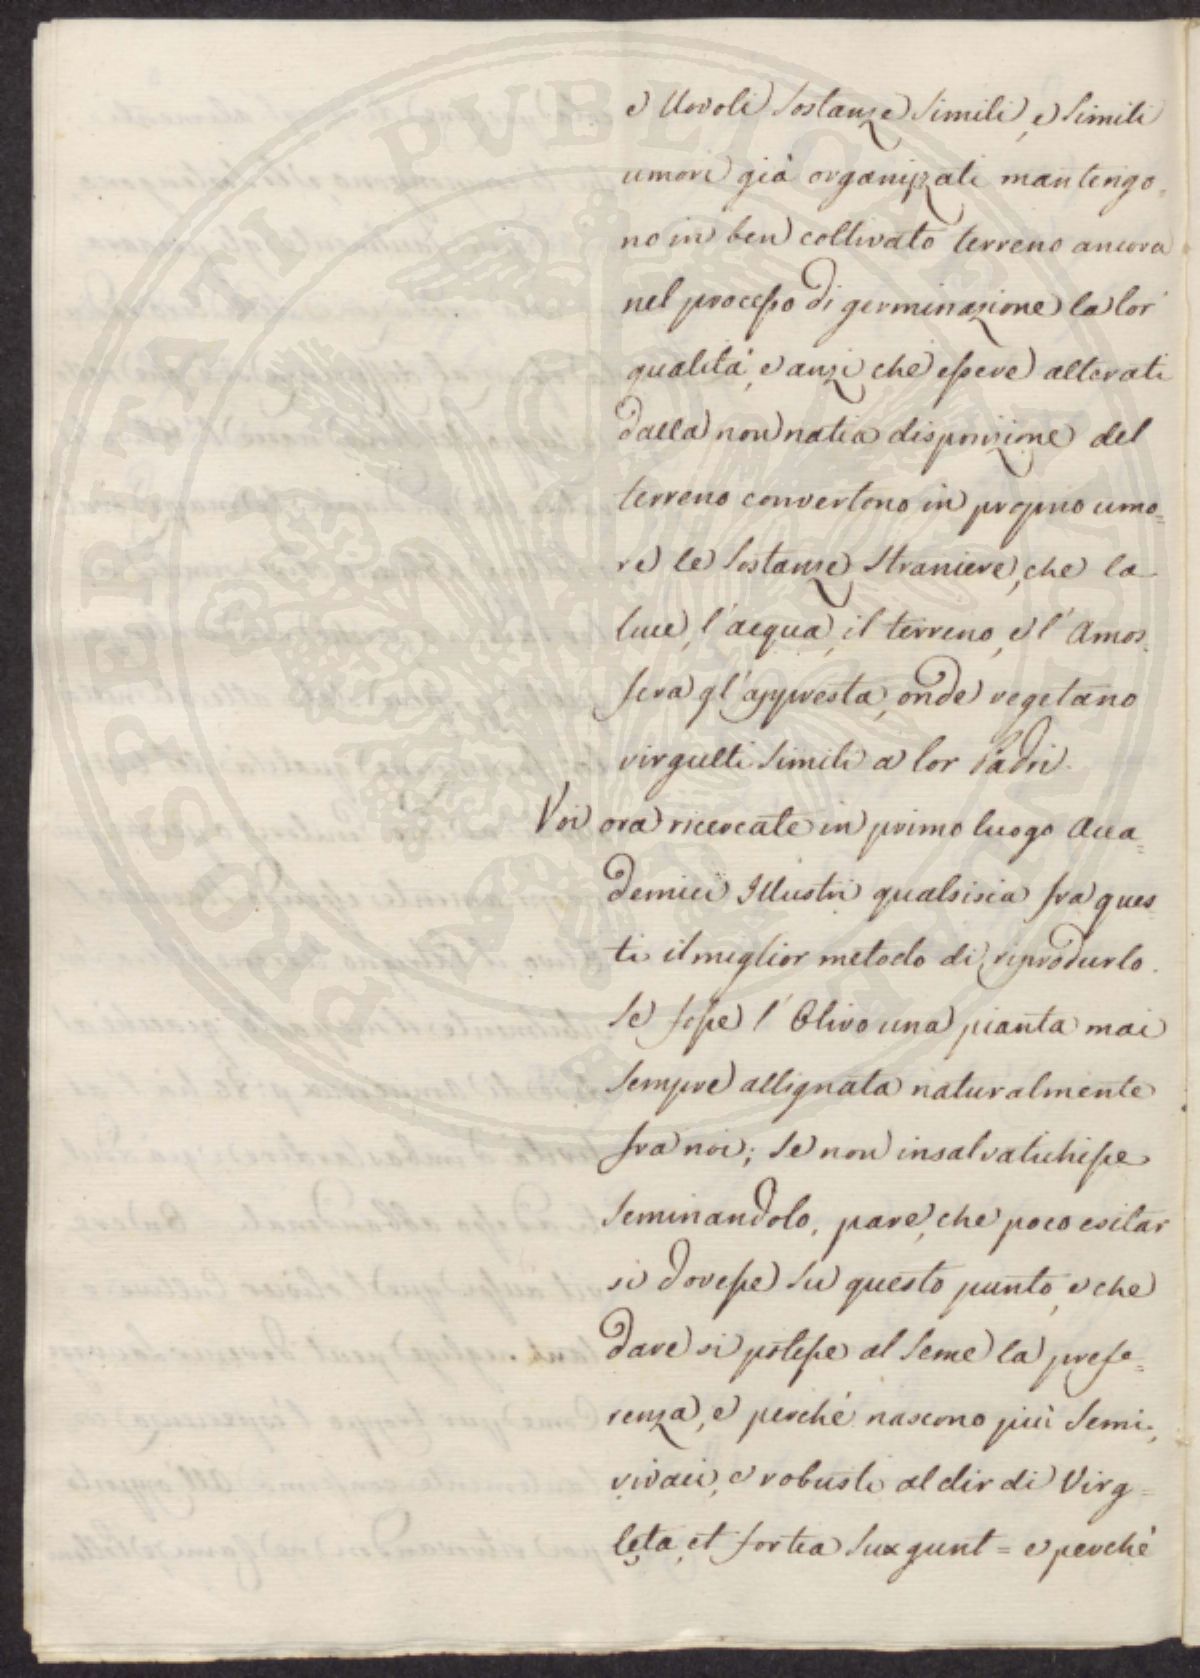 e Uovoli sostanze simili, e simili
umori già organizzati mantengo=
no in ben coltivato terreno ancora
nel processo di germinazione la lor
qualità, e anzi che essere alterati
dalla non natia disposizione del
terreno convertono in proprio umo=
re le sostanze straniere, che la
luce, l'acqua, il terreno, e l'Amos=
fera gl'appresta, onde vegetano
virgulti simili a lor Padri.
Voi ora ricercate in primo luogo Acca=
demici Illustri qualsisia fra ques
ti il miglior metodo di riprodurlo.
Se fosse l'Olivo una pianta mai
sempre allignata naturalmente
fra noi; se non insalvatichisse
seminandolo, pare, che poco esitar
si dovesse su questo punto, e che
dare si potesse al seme la prefe=
renza, e perchè nascono più semi,
vivaci, e robusti al dir di Virg=
lęta, et fortia surgunt = e perchè
PROSPERITATI PVBLICAE